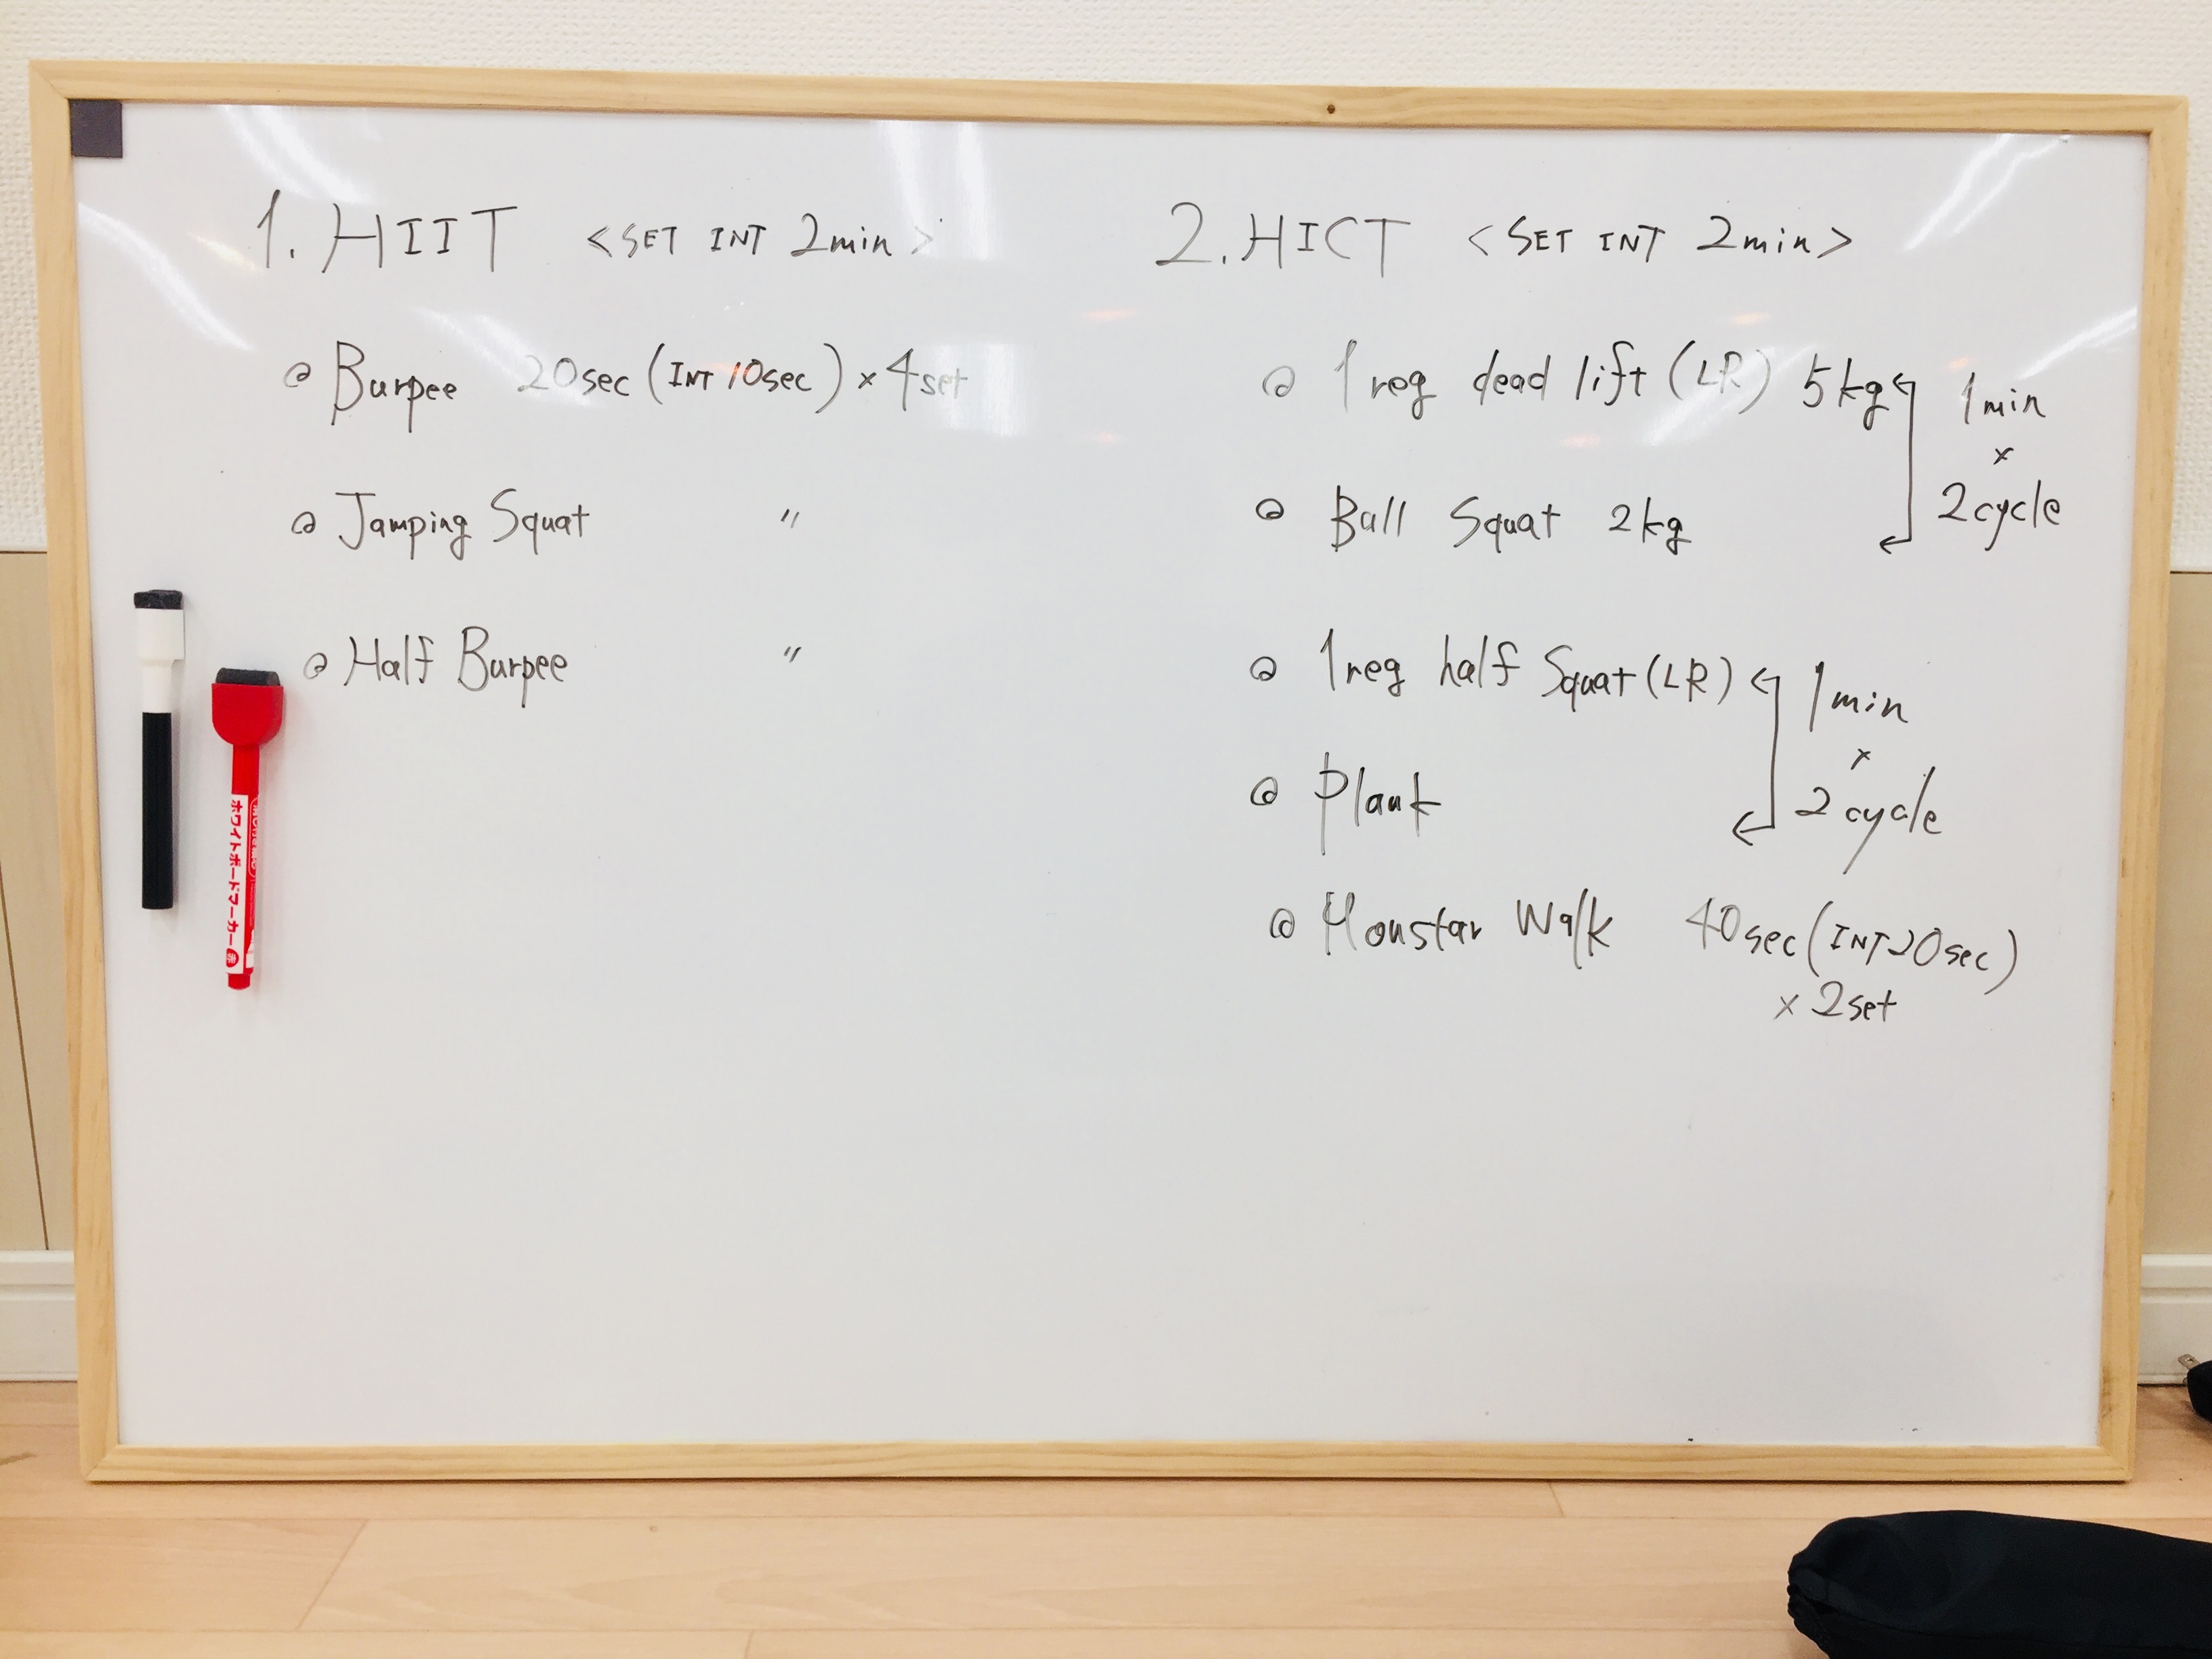 1. HIIT <SET INT 2min>
@ Burpee 20sec (INT 10sec) × 4set
@ Jamping Squat 〃
@ Half Burpee 〃
2. HICT <SET INT 2min>
@ 1 reg dead lift (LR) 5kg
@ Ball Squat 2kg
1min
×
2cycle
@ 1reg half Squat (LR)
@ Plank
1min
×
2cycle
@ Monstar Walk 40sec (INT 20sec)
× 2set
ホワイトボードマーカー 赤